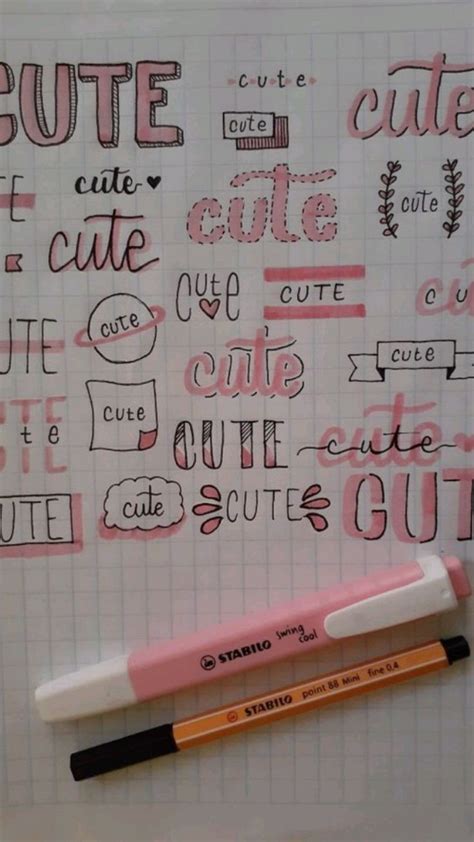 CUTE
c·u·t·e
cute
cute
E
cute
cute
cute
cute
cute
CUTE
c u
UTE
cute
cute
cute
UTE
t e
cute
CUTE
cute
UTE
cute
CUTE
CUT
STABILO swing cool
STABILO point 88 Mini fine 0.4